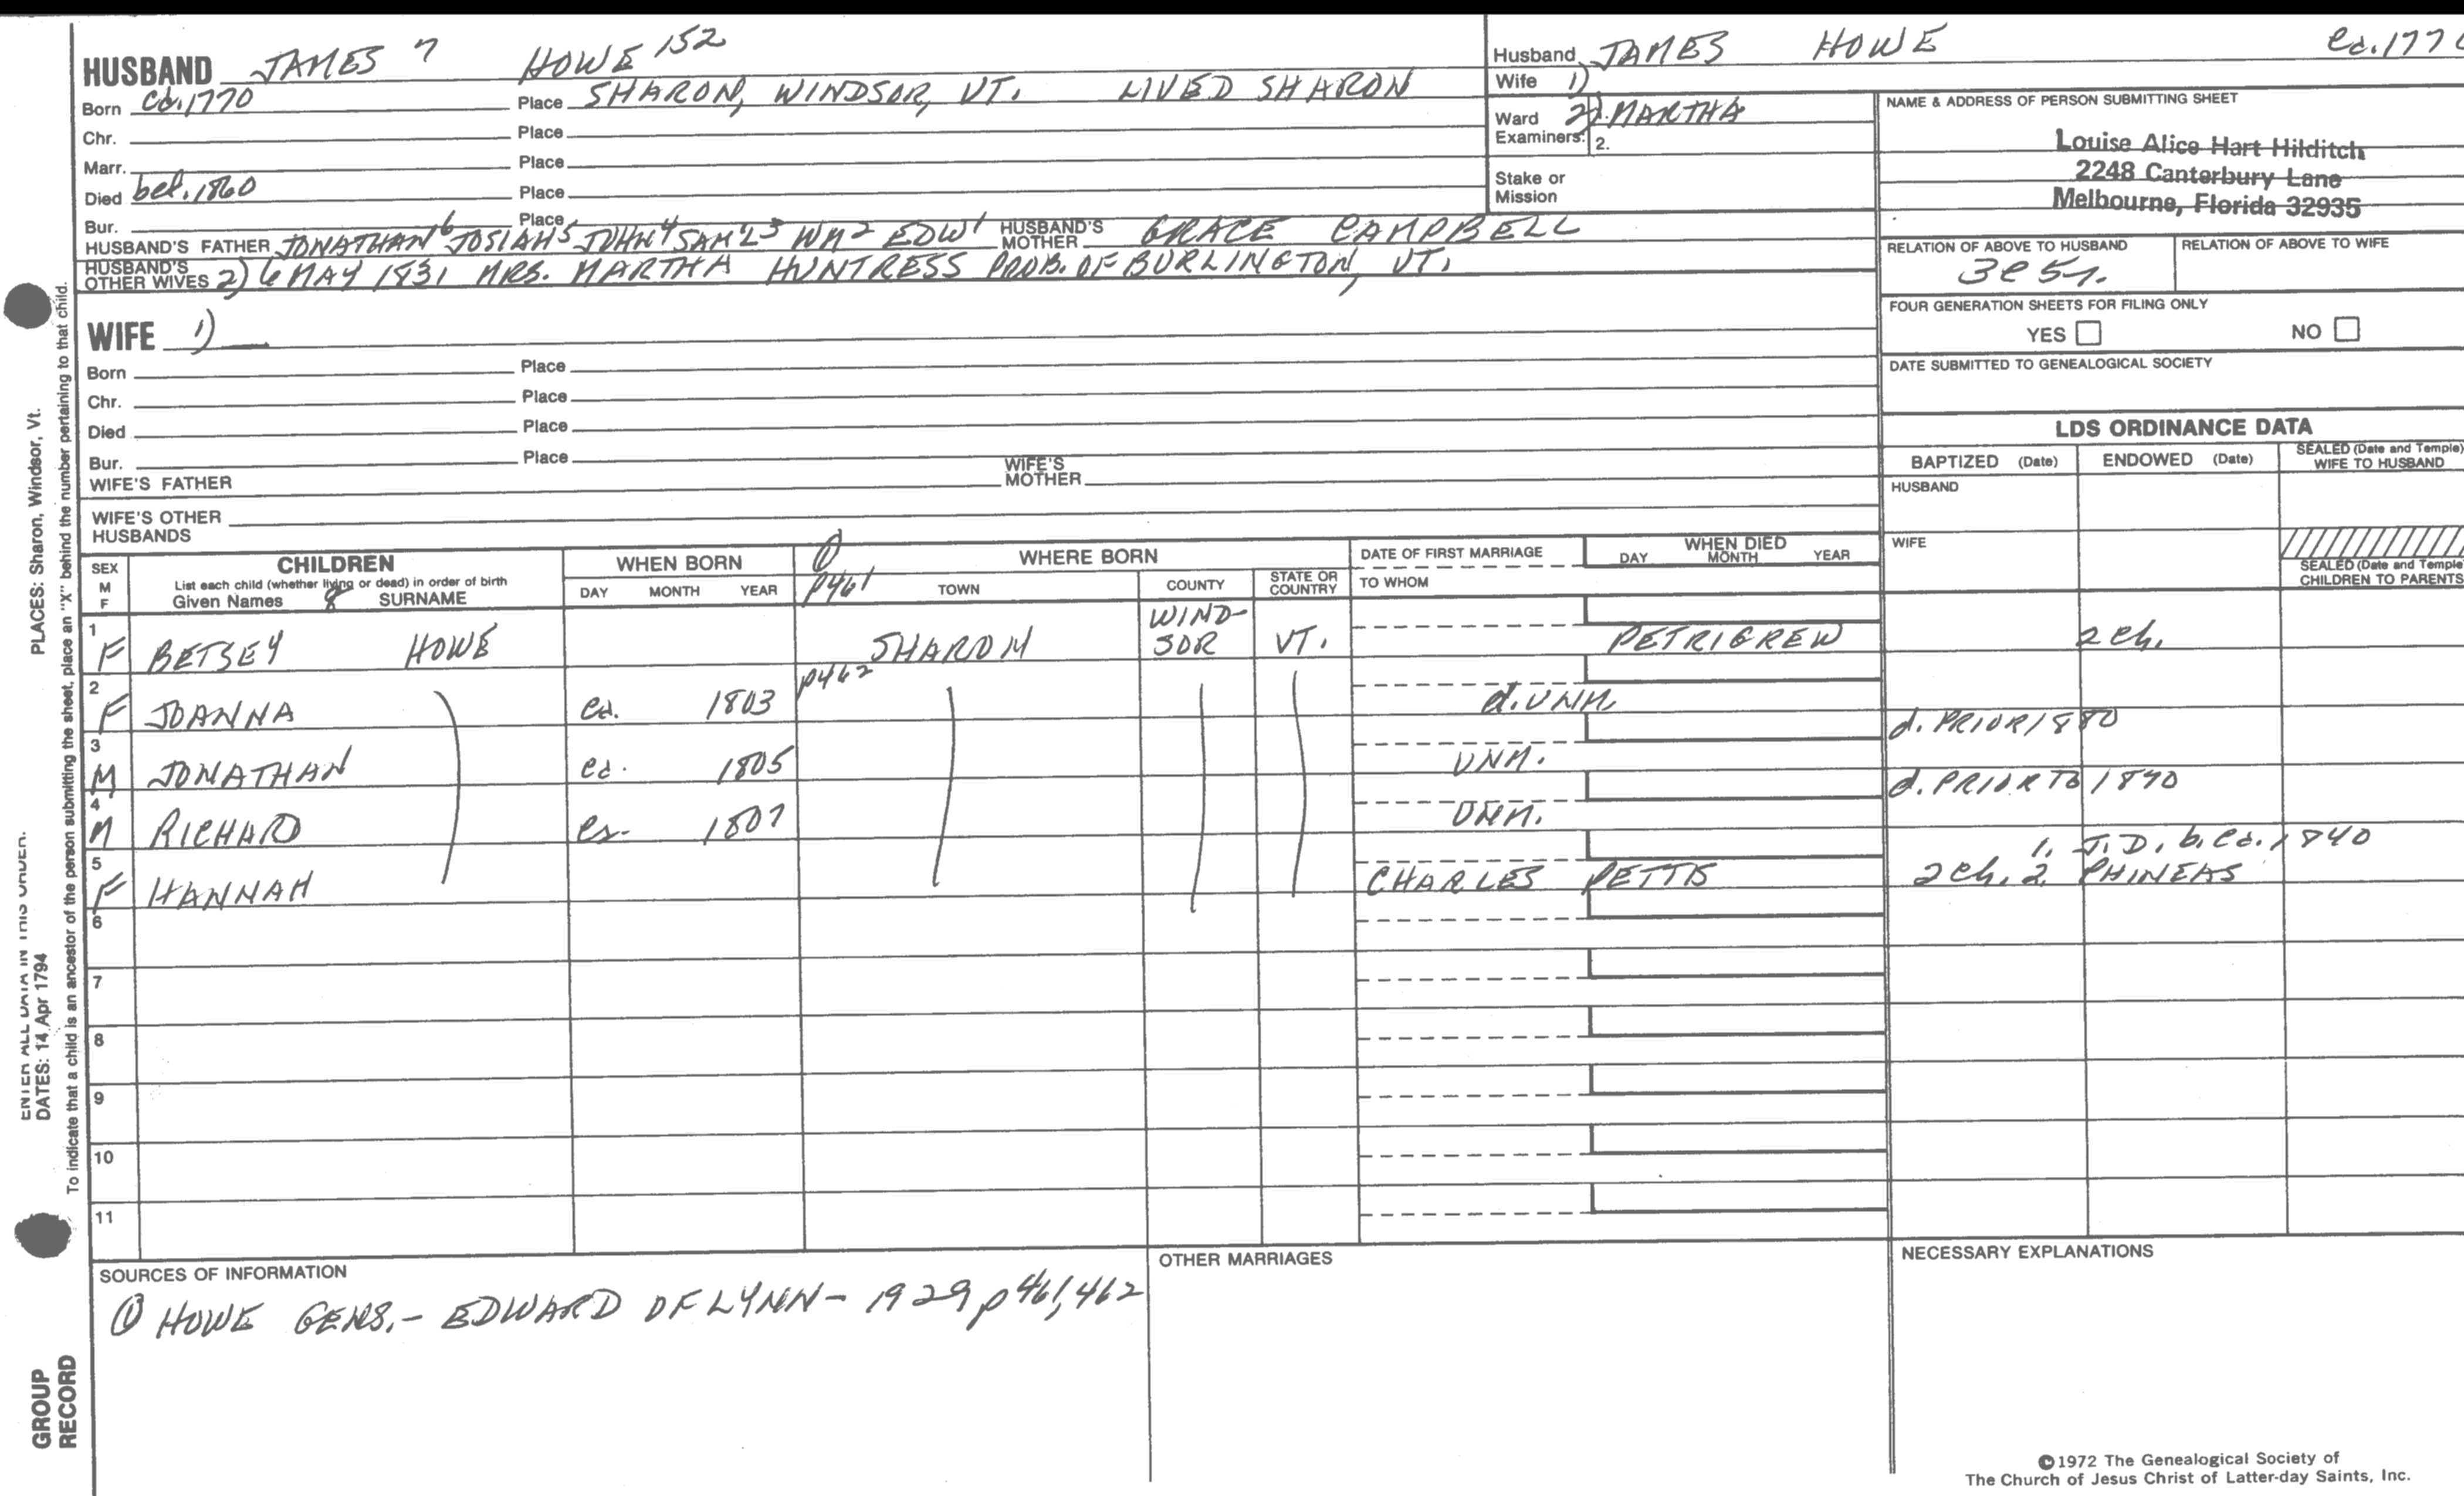 HUSBAND JAMES 7 HOWE 152
Born ca.1770 Place SHARON, WINDSOR, VT. LIVED SHARON
Chr. Place
Marr. Place
Died bef.1860 Place
Bur. Place
HUSBAND'S FATHER JONATHAN6 JOSIAH5 JOHN4 SAM'L3 WM2 EDW1 HUSBAND'S MOTHER GRACE CAMPBELL
HUSBAND'S OTHER WIVES 2) 6 MAY 1831 MRS. MARTHA HUNTRESS PROB. OF BURLINGTON, VT.
WIFE 1)
Born Place
Chr. Place
Died Place
Bur. Place
WIFE'S FATHER WIFE'S MOTHER
WIFE'S OTHER HUSBANDS
Husband JAMES HOWE ca.1770
Wife 1)
Ward 2). MARTHA
Examiners: 2.
Stake or Mission
NAME & ADDRESS OF PERSON SUBMITTING SHEET
Louise Alice Hart Hilditch
2248 Canterbury Lane
Melbourne, Florida 32935
RELATION OF ABOVE TO HUSBAND RELATION OF ABOVE TO WIFE
3C5r.
FOUR GENERATION SHEETS FOR FILING ONLY
YES NO
DATE SUBMITTED TO GENEALOGICAL SOCIETY
LDS ORDINANCE DATA
BAPTIZED (Date) ENDOWED (Date) SEALED (Date and Temple) WIFE TO HUSBAND
HUSBAND
WIFE
SEALED (Date and Temple) CHILDREN TO PARENTS
SEX M F CHILDREN WHEN BORN ① WHERE BORN DATE OF FIRST MARRIAGE WHEN DIED
List each child (whether living or dead) in order of birth
Given Names 8 SURNAME DAY MONTH YEAR p461 TOWN COUNTY STATE OR COUNTRY TO WHOM DAY MONTH YEAR
1 F BETSEY HOWE SHARON WIND-SOR VT. PETRIGREW 2 ch.
2 F JOANNA ca. 1803 p462 d. UNM. d. PRIOR 1880
3 M JONATHAN ca. 1805 UNM. d. PRIOR TO 1840
4 M RICHARD ca. 1807 UNM.
5 F HANNAH CHARLES PETTIS 2 ch. 1. J.D. b. ca. 1840
2. PHINEAS
6
7
8
9
10
11
SOURCES OF INFORMATION OTHER MARRIAGES NECESSARY EXPLANATIONS
① HOWE GENS. - EDWARD OF LYNN - 1929 p 461, 462
©1972 The Genealogical Society of
The Church of Jesus Christ of Latter-day Saints, Inc.
PLACES: Sharon, Windsor, Vt.
To indicate that a child is an ancestor of the person submitting the sheet, place an "X" behind the number pertaining to that child.
ENTER ALL DATA IN THIS ORDER.
DATES: 14 Apr 1794
GROUP
RECORD